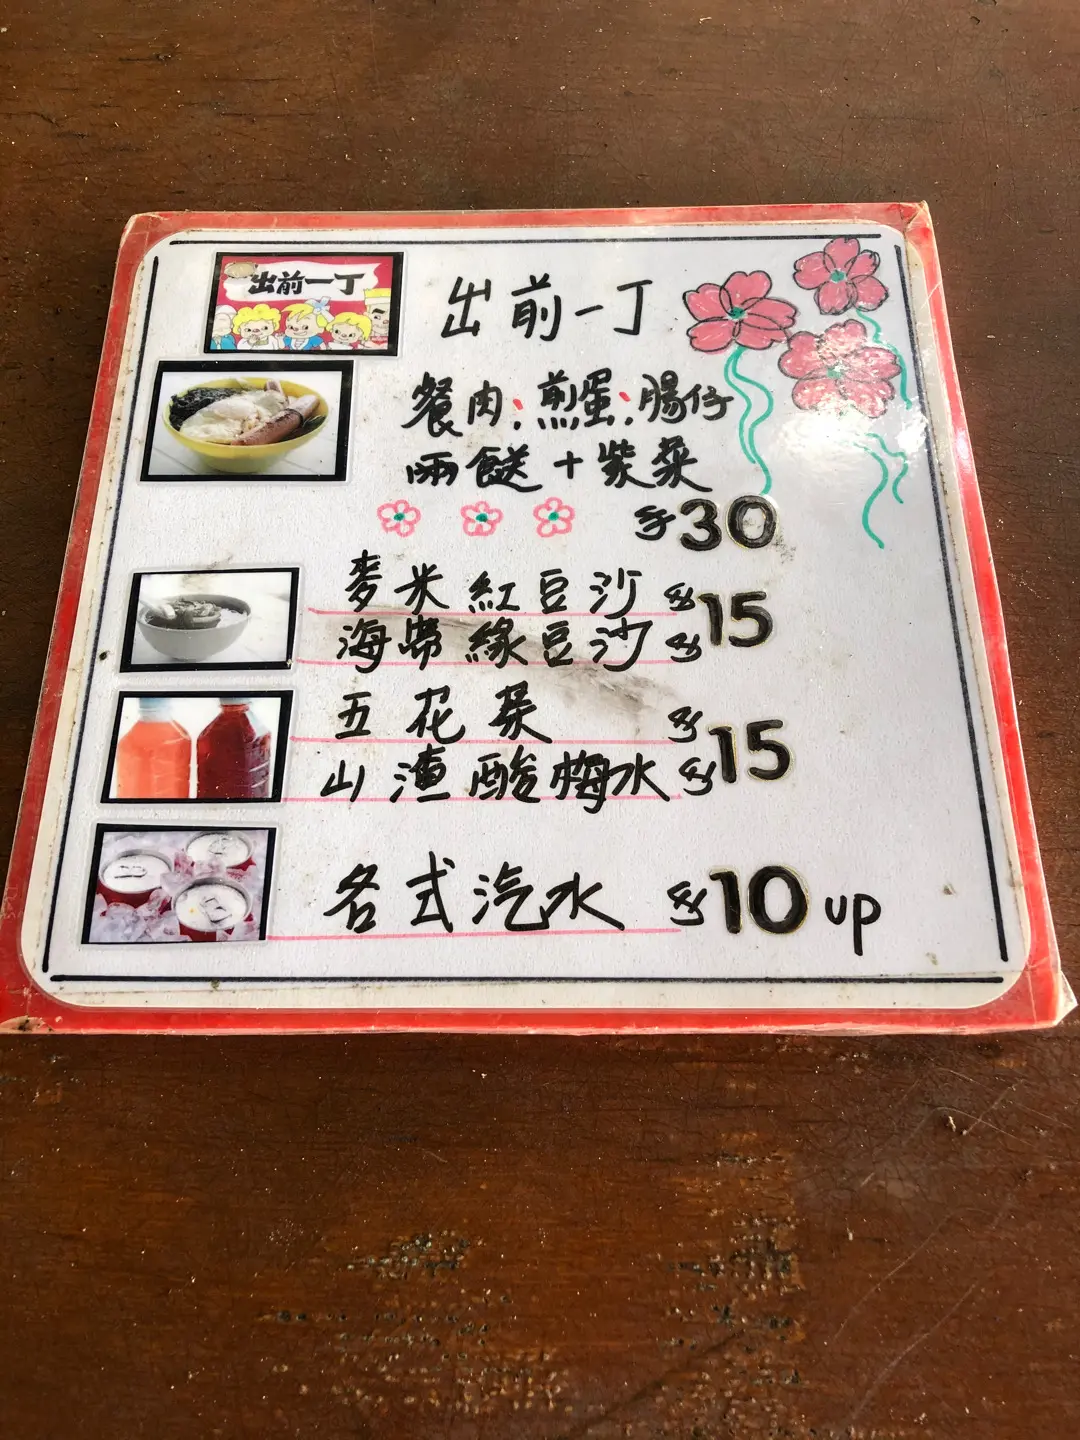 出前一丁
出前一丁
餐肉,煎蛋,腸仔
兩餸+紫菜
$30
麥米紅豆沙 $15
海帶綠豆沙 $
五花茶 $15
山渣酸梅水 $
各式汽水 $10 up